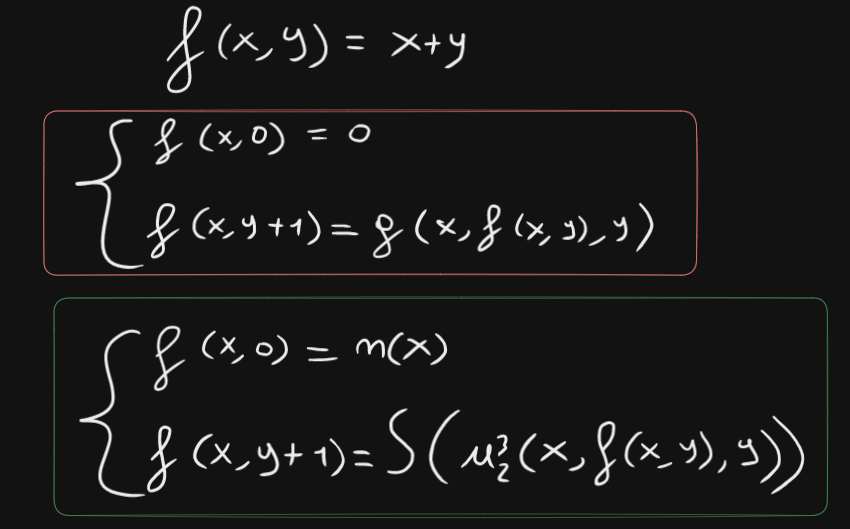 f(x,y) = x+y
f(x,0) = 0
f(x,y+1) = g(x,f(x,y),y)
f(x,0) = n(x)
f(x,y+1) = S(u³₂(x,f(x,y),y))